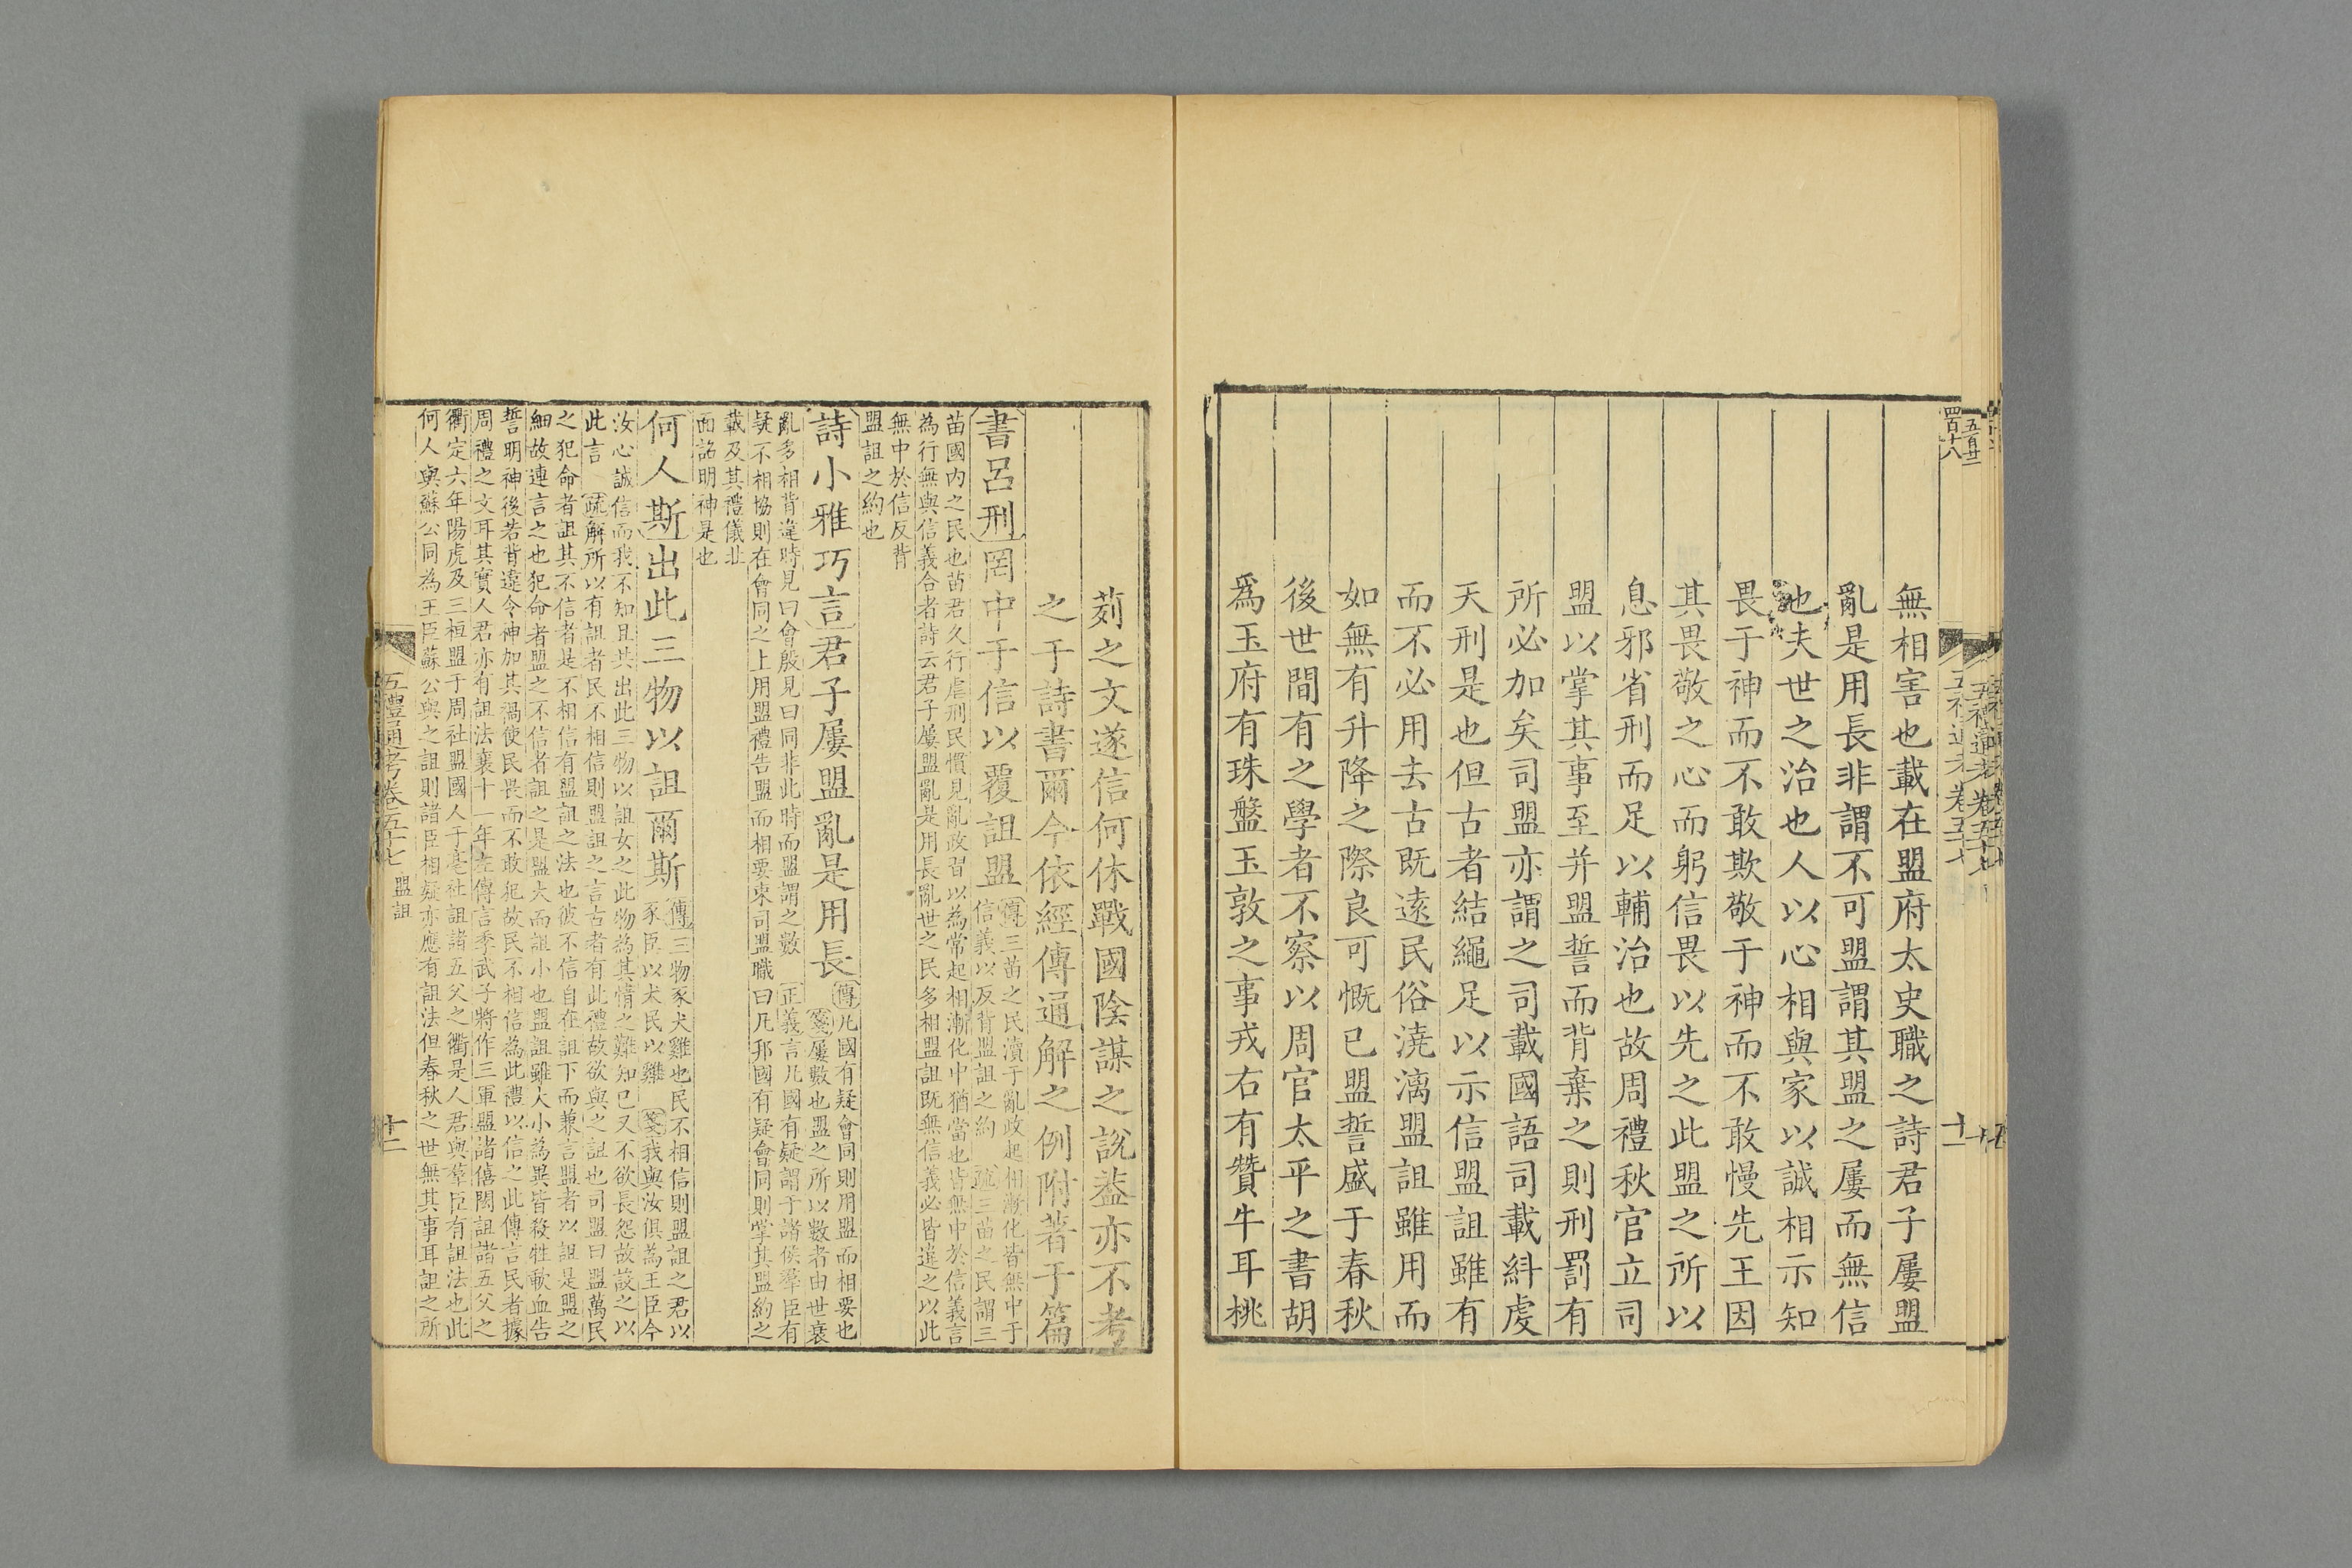 無相害也載在盟府太史職之詩君子屢盟
亂是用長非謂不可盟謂其盟之屢而無信
也夫世之治也人以心相與家以誠相示知
畏于神而不敢欺敬于神而不敢慢先王因
其畏敬之心而躬信畏以先之此盟之所以
息邪省刑而足以輔治也故周禮秋官立司
盟以掌其事至并盟誓而背棄之則刑罰有
所必加矣司盟亦謂之司載國語司載糾虔
天刑是也但古者結繩足以示信盟詛雖有
而不必用去古既遠民俗澆漓盟詛雖用而
如無有升降之際良可慨已盟誓盛于春秋
後世間有之學者不察以周官太平之書胡
爲玉府有珠盤玉敦之事戎右有贊牛耳桃
茢之文遂信何休戰國陰謀之說葢亦不考
之于詩書爾今依經傳通解之例附著于篇
書呂刑罔中于信以覆詛盟
傳三苗之民瀆于亂政起相漸化皆無中于
信義以反背盟詛之約 疏三苗之民謂三
苗國內之民也苗君久行虐刑民慣見亂政習以為常起相漸化中猶當也皆無中於信義言
為行無與信義合者詩云君子屢盟亂是用長亂世之民多相盟詛既無信義必皆違之以此
無中於信反背
盟詛之約也
詩小雅巧言君子屢盟亂是用長
傳凡國有疑會同則用盟而相要也
箋屢數也盟之所以數者由世衰
亂多相背違時見曰會殷見曰同非此時而盟謂之數 正義言凡國有疑謂于諸侯羣臣有
疑不相協則在會同之上用盟禮告盟而相要束司盟職曰凡邦國有疑會同則掌其盟約之
載及其禮儀北
面詔明神是也
何人斯出此三物以詛爾斯
傳三物豕犬雞也民不相信則盟詛之君以
豕臣以犬民以雞 箋我與汝俱為王臣今
汝心誠信而我不知且共出此三物以詛女之此物為其情之難知已又不欲長怨故設之以
此言 疏解所以有詛者民不相信則盟詛之言古者有此禮故欲與之詛也司盟曰盟萬民
之犯命者詛其不信者是不相信有盟詛之法也彼不信自在詛下而兼言盟者以詛是盟之
細故連言之也犯命者盟之不信者詛之是盟大而詛小也盟詛雖大小為異皆殺牲歃血告
誓明神後若背違令神加其禍使民畏而不敢犯故民不相信為此禮以信之此傳言民者據
周禮之文耳其實人君亦有詛法襄十一年左傳言季武子將作三軍盟諸僖閎詛諸五父之
衢定六年陽虎及三桓盟于周社盟國人于亳社詛諸五父之衢是人君與羣臣有詛法也此
何人與蘇公同為王臣蘇公與之詛則諸臣相疑亦應有詛法但春秋之世無其事耳詛之所
五禮通考卷五十七 盟詛
十二